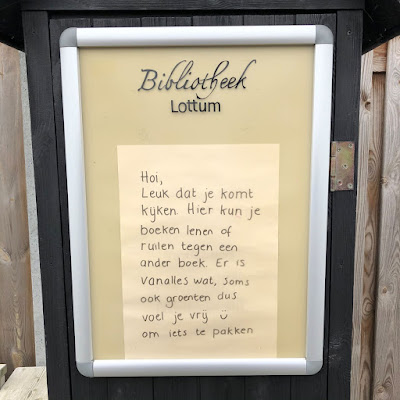 Bibliotheek
Lottum
Hoi,
Leuk dat je komt
kijken. Hier kun je
boeken lenen of
ruilen tegen een
ander boek. Er is
vanalles wat, soms
ook groenten dus
voel je vrij ☺
om iets te pakken